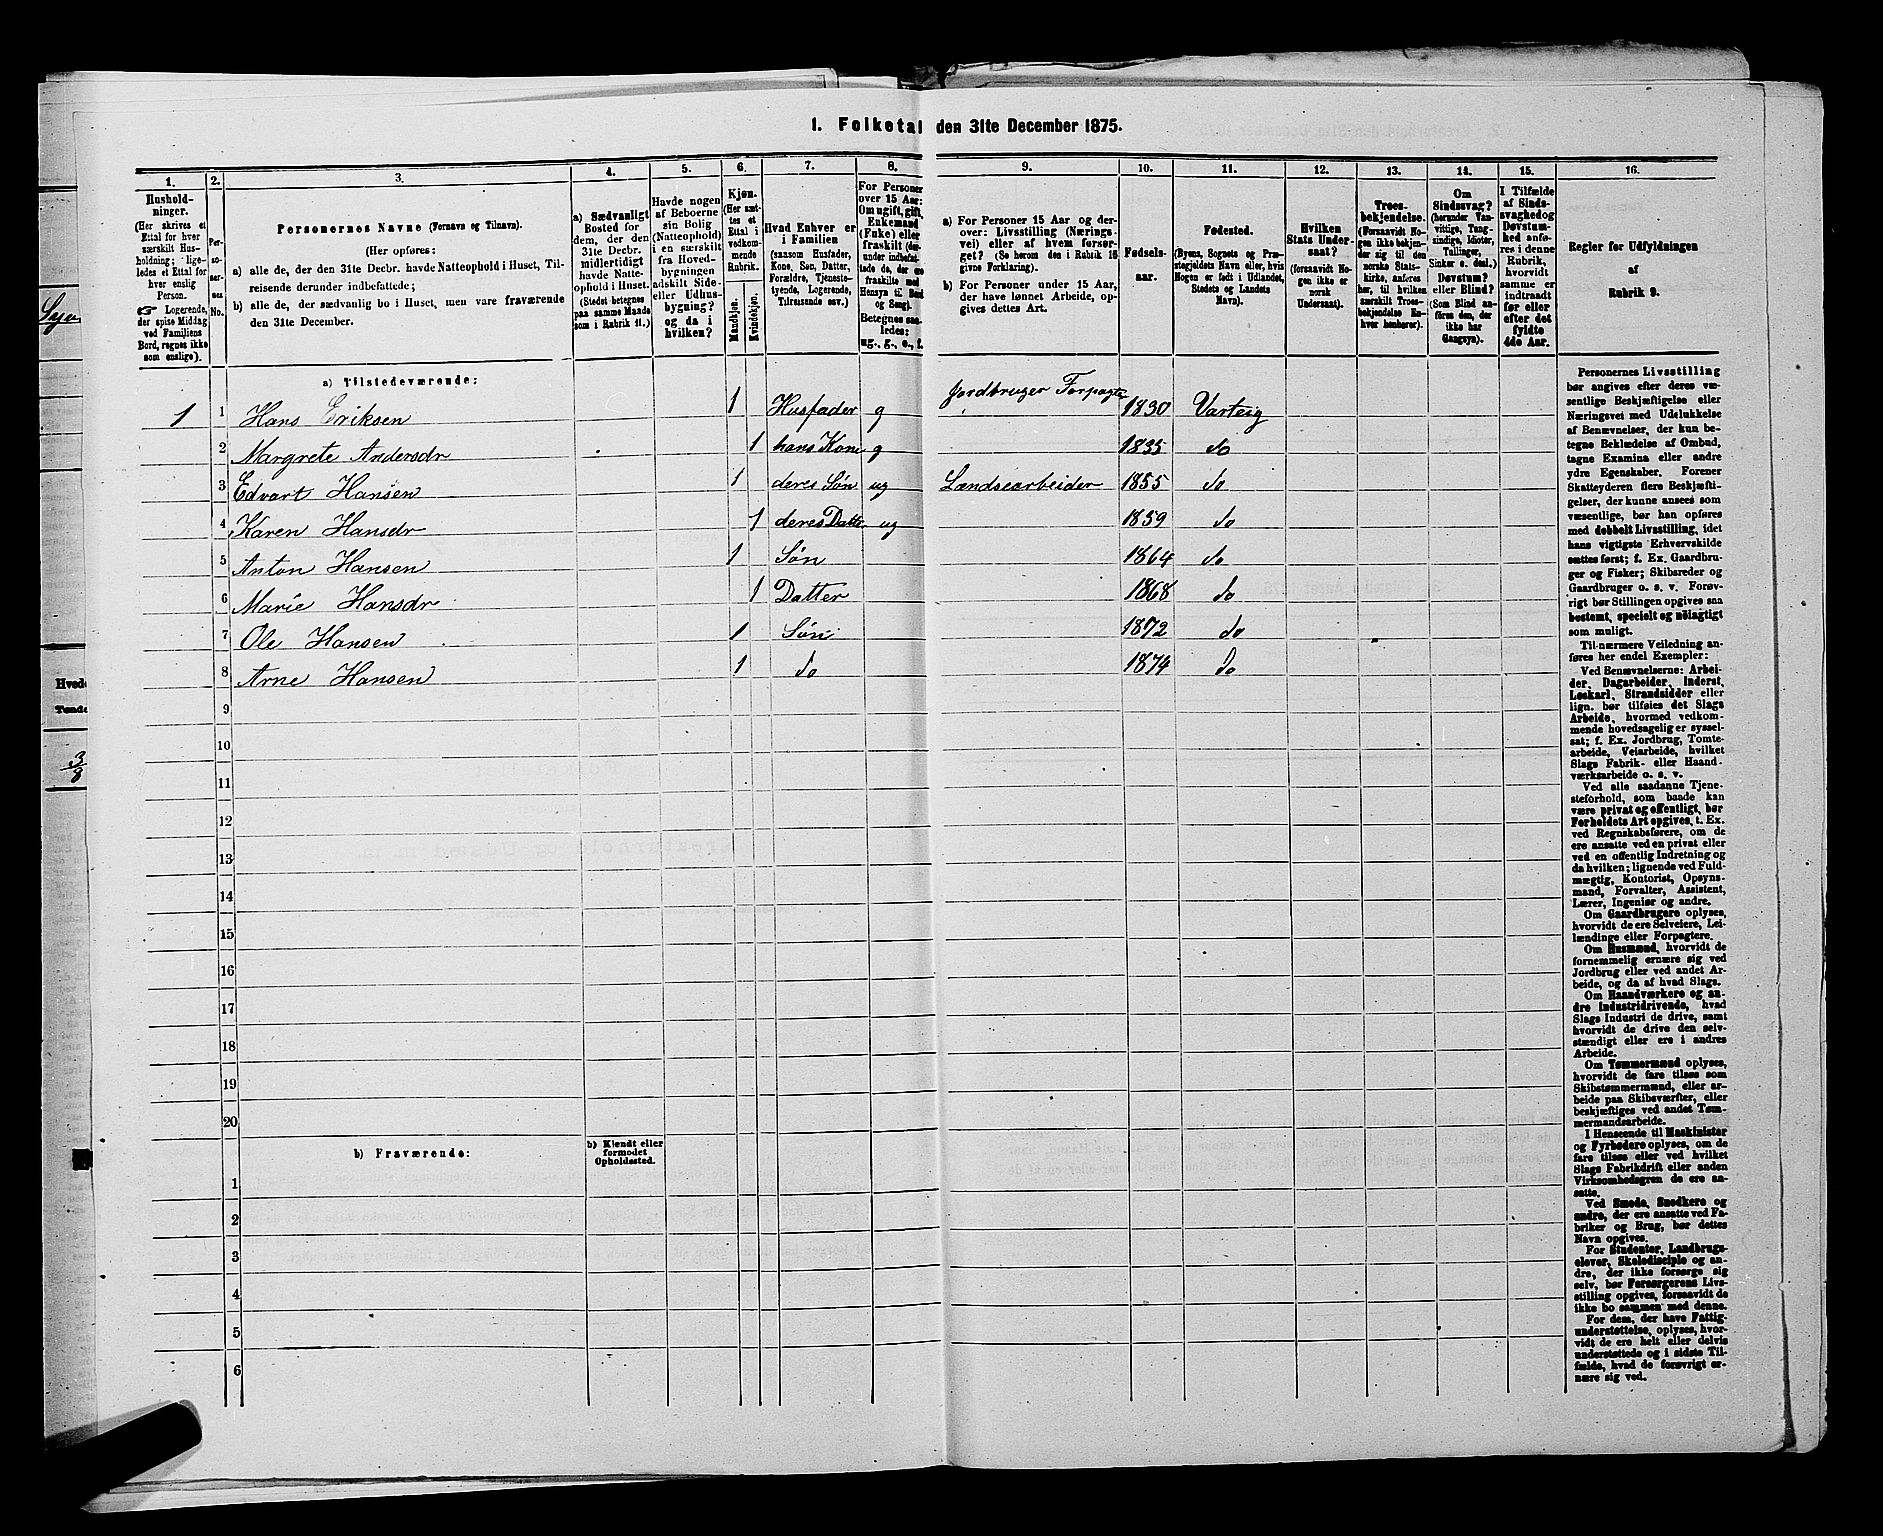 1. Folketal den 31te December 1875.
1.
Hushold-
ninger.
(Her skrives et
Ettal for hver
særskilt Hus-
holdning; lige-
ledes et Ettal for
hver enslig
Person.
☞ Logerende,
der spise Middag
ved Familiens
Bord, regnes ikke
som enslige).
2.
Per-
so-
ner-
nes
No.
3.
Personernes Navne (Fornavn og Tilnavn).
(Her opføres:
a) alle de, der den 31te Decbr. havde Natteophold i Huset, Til-
reisende derunder indbefattede;
b) alle de, der sædvanlig bo i Huset, men vare fraværende
den 31te December.
4.
a) Sædvanligt
Bosted for
dem, der den
31te Decbr.
midlertidigt
havde Natte-
ophold i Huset.
(Stedet betegnes
paa samme Maade
som i Rubrik 11.)
5.
Havde nogen
af Beboerne
sin Bolig
(Natteophold)
i en særskilt
fra Hoved-
bygningen
adskilt Side-
eller Udhus-
bygning?
og da i
hvilken?
6.
Kjøn.
(Her sæt-
tes et
Ettal i
vedkom-
mende
Rubrik.
Mandkjøn.
Kvindekjøn.
7.
Hvad Enhver er
i Familien
(saasom Husfader,
Kone, Søn, Datter,
Forældre, Tjeneste-
tyende, Logerende,
Tilreisende osv.)
8.
For Personer
over 15 Aar:
Om ugift, gift,
Enkemand
(Enke) eller
fraskilt (der-
under indbefat-
tede de, der ere
fraskilte med
Hensyn til Bord
og Seng).
Betegnes saa-
ledes:
ug., g., e., f.
9.
a) For Personer 15 Aar og der-
over: Livsstilling (Nærings-
vei) eller af hvem forsør-
get? (Se herom den i Rubrik 16
givne Forklaring).
b) For Personer under 15 Aar,
der have lønnet Arbeide, op-
gives dettes Art.
10.
Fødsels-
aar.
11.
Fødested.
(Byens, Sognets og Præ-
stegjeldets Navn eller, hvis
Nogen er født i Udlandet,
Stedets og Landets
Navn).
12.
Hvilken
Stats Under-
saat?
(forsaavidt No-
gen ikke er
norsk
Undersaat).
13.
Troes-
bekjendelse.
(Forsaavidt No-
gen ikke bekjen-
der sig til den
norske Stats-
kirke, anføres
her, til hvilken
særskilt Troes-
bekjendelse En-
hver henhører).
14.
Om
Sindssvag?
(herunder Van-
vittige, Tung-
sindige, Idioter,
Tullinger,
Sinker o. desl.)
Døvstum?
eller Blind?
(Som Blind an-
føres den, der
ikke har
Gangsyn).
15.
I Tilfælde
af Sinds-
svaghed og
Døvstum-
hed anfø-
res i denne
Rubrik,
hvorvidt
samme er
indtraadt
før eller
efter det
fyldte
4de Aar.
16.
Regler for Udfyldningen
af
Rubrik 9.
a) Tilstedeværende:
1 1 Hans Eriksen 1 Husfader g Jordbruger Forpagter 1830 Varteig
2 Margrete Andersdr 1 hans Kone g 1835 do
3 Edvart Hansen 1 deres Søn ug Lændsearbeider 1855 do
4 Karen Hansdr 1 deres Datter ug 1859 do
5 Anton Hansen 1 Søn 1864 do
6 Marie Hansdr 1 Datter 1868 do
7 Ole Hansen 1 Søn 1872 do
8 Arne Hansen 1 do 1874 do
9
10
11
12
13
14
15
16
17
18
19
20
b) Fraværende:
b) Kjendt eller
formodet
Opholdssted.
1
2
3
4
5
6
Personernes Livsstilling
bør angives efter deres væ-
sentlige Beskjæftigelse eller
Næringsvei med Udelukkelse
af Benævnelser, der kun be-
tegne Beklædelse af Ombud,
tagne Examina eller andre
ydre Egenskaber. Forener
Skatteyderen flere Beskjæfti-
gelser, der kunne ansees som
væsentlige, bør han opføres
med dobbelt Livsstilling, idet
hans vigtigste Erhvervskilde
sættes først; f. Ex. Gaardbru-
ger og Fisker; Skibsreder og
Gaardbruger o. s. v. Forøv-
rigt bør Stillingen opgives saa
bestemt, specielt og nöiagtigt
som muligt.
Til nærmere Veiledning an-
føres her endel Exempler:
Ved Benævnelserne: Arbei-
der, Dagarbeider, Inderst,
Løskarl, Strandsidder eller
lign. bør tilføies det Slags
Arbeide, hvormed vedkom-
mende hovedsagelig er syssel-
sat; f. Ex. Jordbrug, Tomte-
arbeide, Veiarbeide, hvilket
Slags Fabrik- eller Haand-
værksarbeide o. s. v.
Ved alle saadanne Tjene-
steforhold, som baade kan
være privat og offentligt, bør
Forholdets Art opgives, t. Ex.
ved Regnskabsførere, om de
ere ansatte ved en privat eller
ved en offentlig Indretning og
da hvilken; lignende ved Fuld-
mægtig, Kontorist, Opsyns-
mand, Forvalter, Assistent,
Lærer, Ingeniør og andre.
Om Gaardbrugere oplyses,
hvorvidt de ere Selveiere, Lei-
lændinge eller Forpagtere.
Om Husmænd, hvorvidt de
fornemmelig ernære sig ved
Jordbrug eller ved andet Ar-
beide, og da af hvad Slags.
Om Haandværkere og an-
dre Industridrivende, hvad
Slags Industri de drive, samt
hvorvidt de drive den selv-
stændigt eller ere i andres
Arbeide.
Om Tømmermænd oplyses,
hvorvidt de fare tilsøs som
Skibstømmermænd, eller ar-
beide paa Skibsværfter, eller
beskjæftiges ved andet Tøm-
mermandsarbeide.
I Henseende til Maskinister
og Fyrbødere oplyses, om de
fare tilsøs eller ved hvilket
Slags Fabrikdrift eller anden
Virksomhedsgren de ere an-
satte.
Ved Smede, Snedkere og
andre, der ere ansatte ved Fa-
briker og Brug, bør dettes
Navn opgives.
For Studenter, Landbrugs-
elever, Skoledisciple og an-
dre, der ikke forsørge sig
selv, bør Forsørgerens Livs-
stilling opgives, forsaavidt de
ikke bo sammen med denne.
For dem, der have Fattig-
understøttelse, oplyses, hvor-
vidt de ere helt eller delvis
understøttede og i sidste Til-
fælde, hvad de forøvrigt er-
nære sig ved.
Hvede
Tønde
3/8